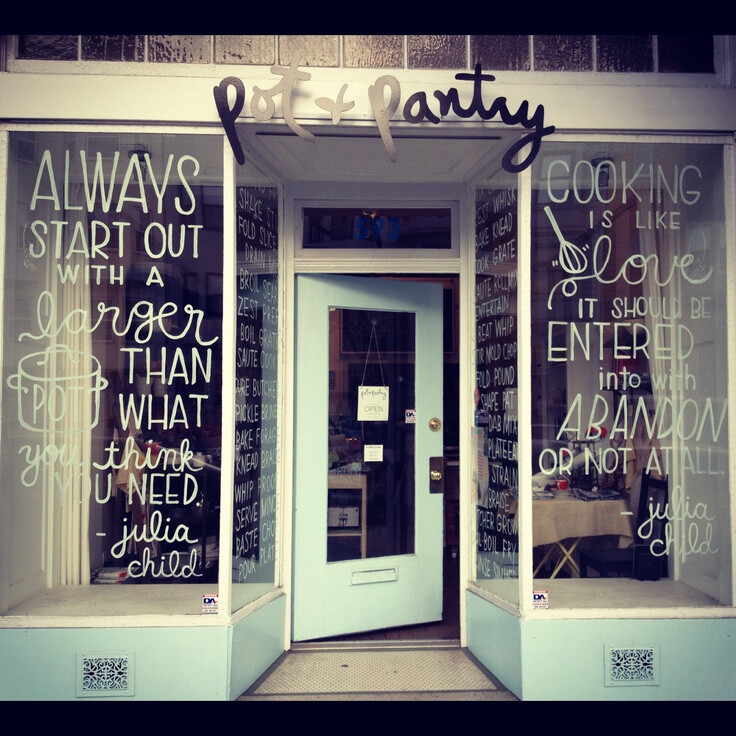 pot + pantry
ALWAYS
START OUT
WITH A
larger
POT THAN
WHAT
you think
YOU NEED.
- julia
child
SHAKE
FOLD SLICE
DRAIN
BROIL
ZEST
BOIL GRATE
SAUTE
BUTCHER
PICKLE BRINE
BAKE FORAGE
KNEAD
WHIP PROOF
SERVE
BASTE
POUR PLATE
593
pot+pantry
OPEN
WHISK
BAKE KNEAD
GRATE
ENTERTAIN
BEAT WHIP
CHOP
FOLD POUND
SHAPE PAT
DAB MIX
PLATE EAT
STRAIN
BRAISE
BOIL FRY
COOKING
IS LIKE
love
IT SHOULD BE
ENTERED
into with
ABANDON
OR NOT AT ALL.
- julia
child
DA
DA